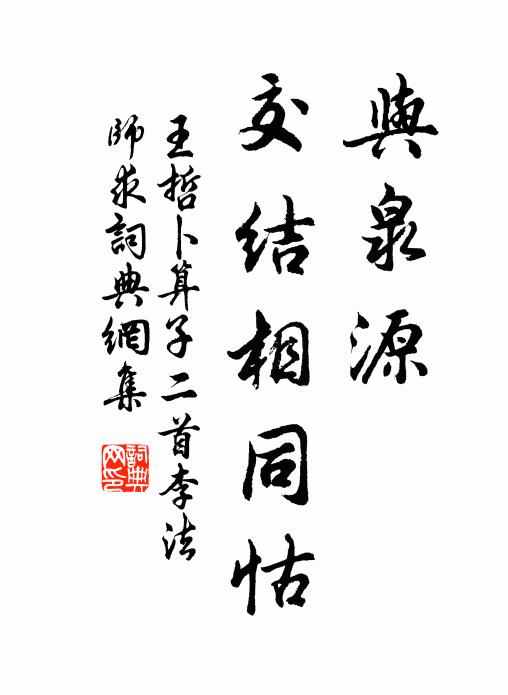 與泉源
交結相同怙
王哲卜算子二首李法
師求詞典網集
詞典
网印